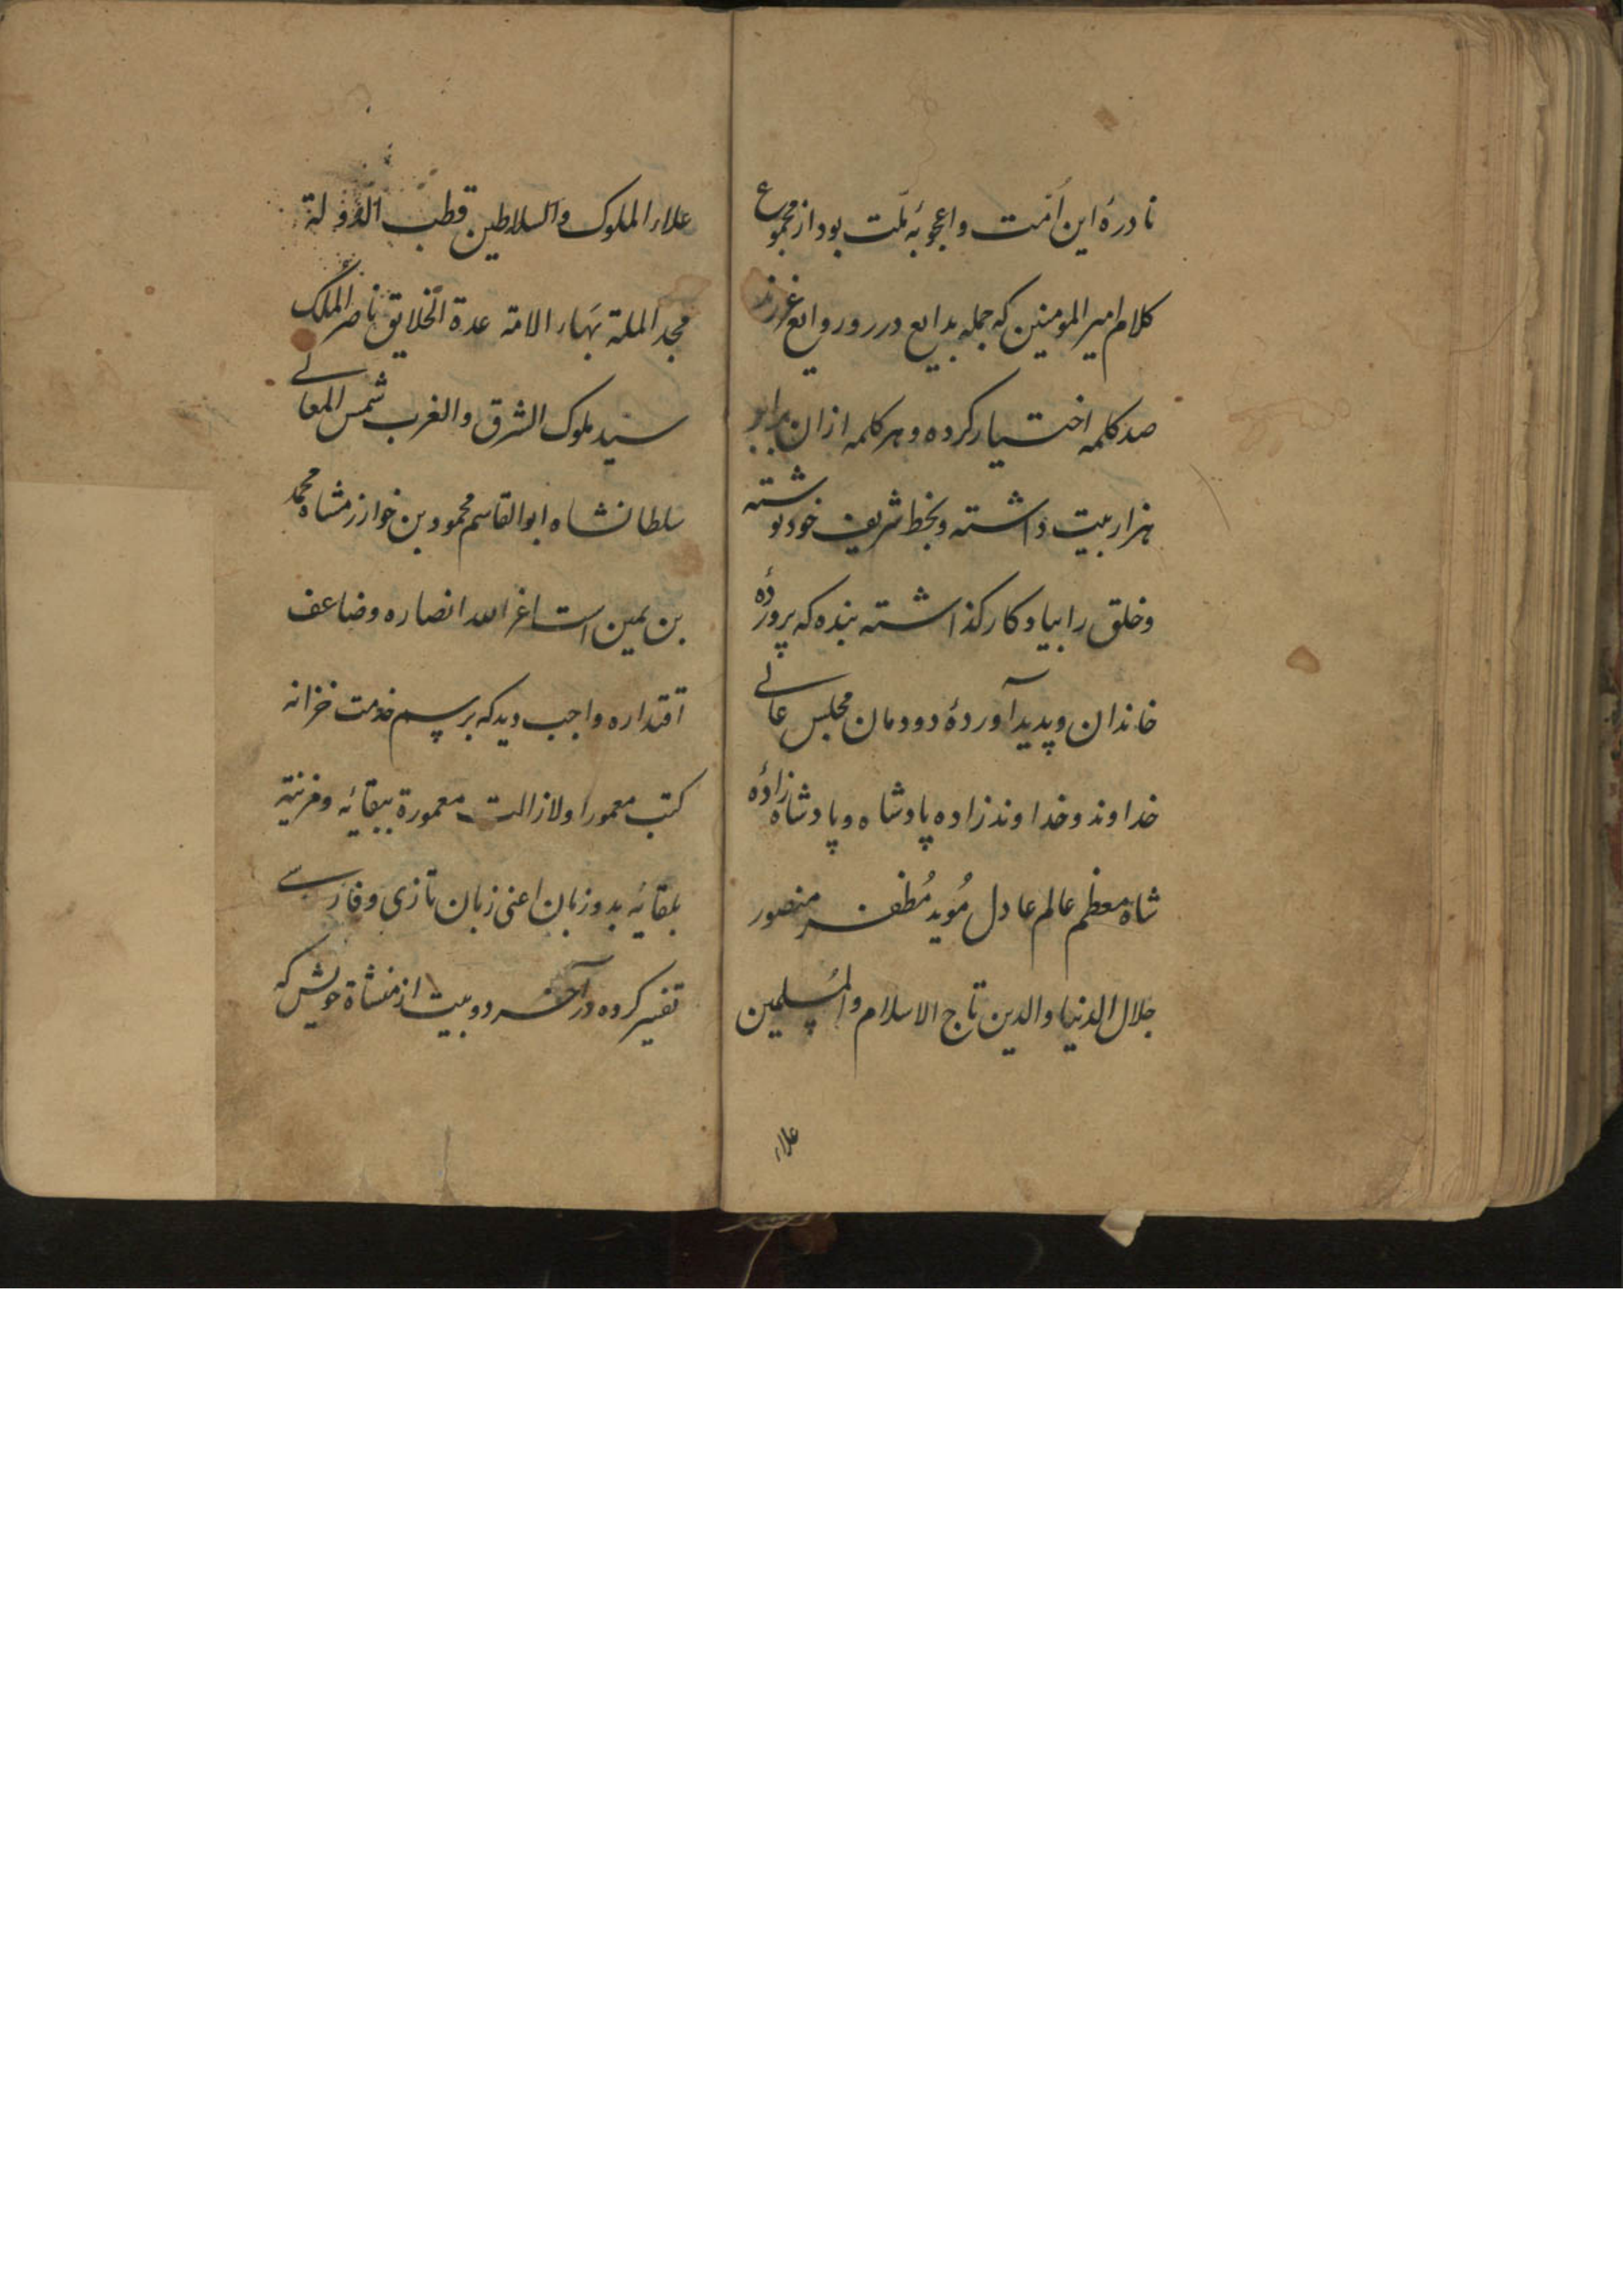 نادرهٔ این اُمّت و اعجوبهٔ ملّت بود از مجموع
کلام امیر المومنین که جمله بدایع درر و روایع غررند
صد کلمه اختیار کرده و هر کلمه ازان برابر
هزار بیت داشته و بخط شریف خود نوشته
و خلق را بیادکار کذاشته بنده که پروردهٔ
خاندان و پدید آوردهٔ دودمان مجلس عالی
خداوند و خداوندزاده پادشاه و پادشاه زادهٔ
شاه معظم عالم عادل مُوید مُظفر منصور
جلال الدنیا و الدین تاج الاسلام و المُسلمین
علاء
علاء الملوک و السلاطین قطب الدولة
مجد الملة بهاء الامة عدة الخلایق ناصر الملک
سید ملوک الشرق و الغرب شمس المعالی
سلطانشاه ابو القاسم محمود بن خوارزمشاه محمد
بن یمین است اعز الله انصاره و ضاعف
اقتداره واجب دید که برسم خدمت خزانه
کتب معمور او لازالت معمورة ببقائه و مزینة
بلقائه بدو زبان اعنی زبان تازی و فارسی
تفسیر کرده در آخر دو بیت از منشأة خویش که